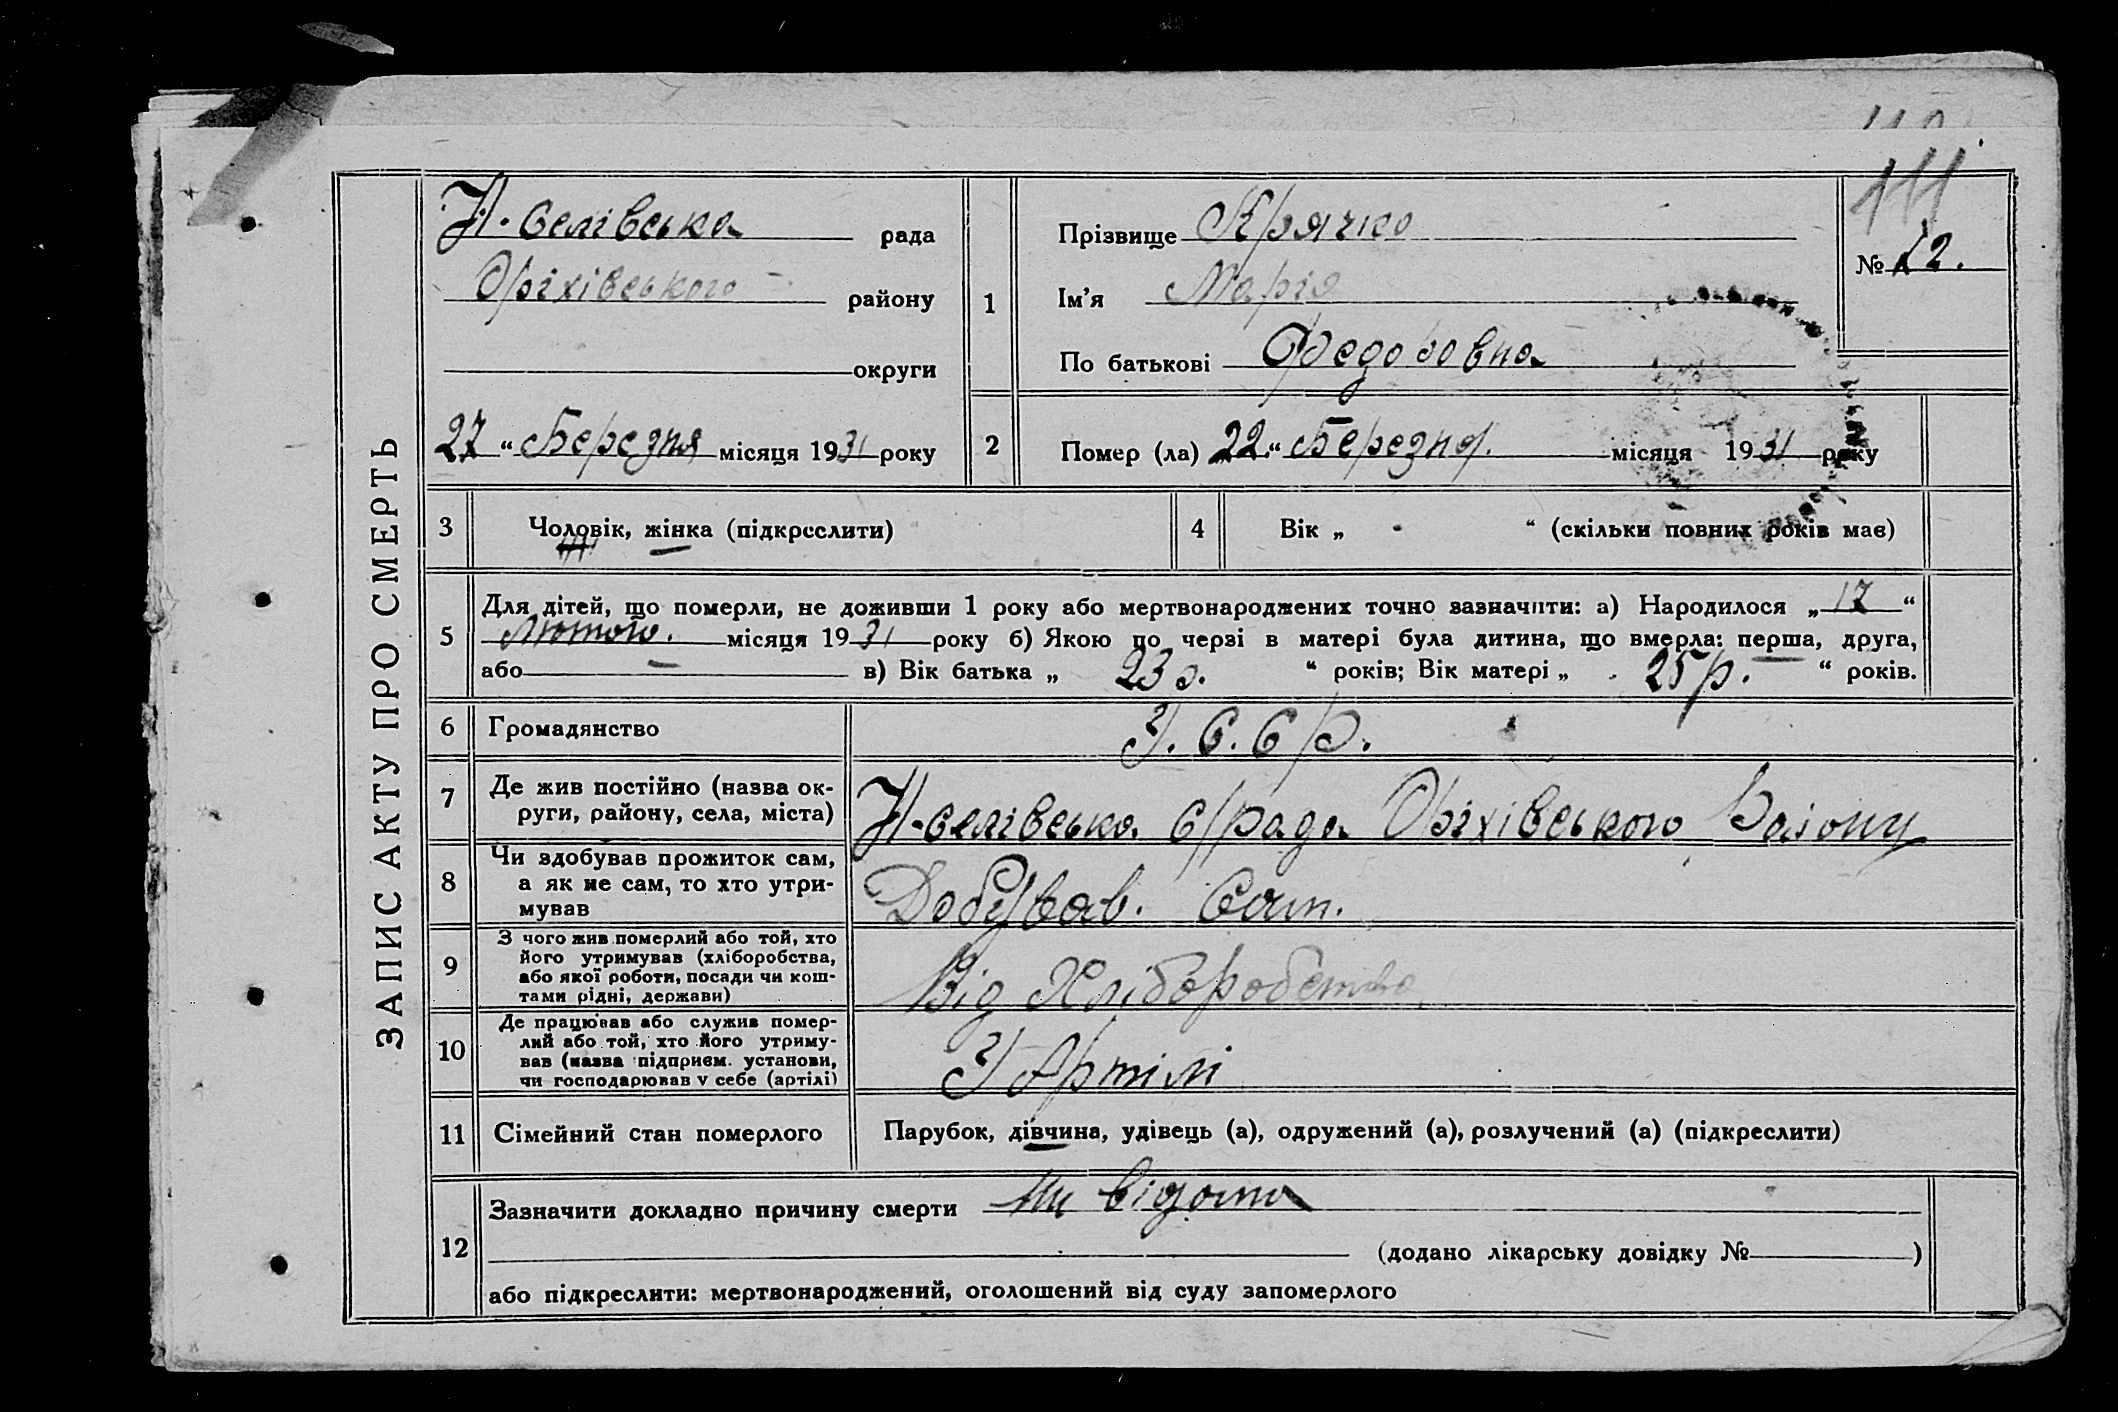 ЗАПИС АКТУ ПРО СМЕРТЬ
111
Н-Селівська рада
Оріхівського району
округи
27 “ Березня місяця 1931 року
1
Прізвище Крячко
Ім’я Марія
По батькові Федоровна
№ 12.
2
Помер (ла) 22 “ Березня місяця 1931 року
3 Чоловік, жінка (підкреслити)
4 Вік „ - “ (скільки повних років має)
5
Для дітей, що померли, не доживши 1 року або мертвонароджених точно зазначити: а) Народилося „ 17 “
Лютого. місяця 1931 року б) Якою по черзі в матері була дитина, що вмерла: перша, друга,
або — в) Вік батька „ 23 р. “ років; Вік матері „ 25 р. “ років.
6 Громадянство У.С.С.Р.
7
Де жив постійно (назва ок-
руги, району, села, міста)
Н-Селівська С/рада Оріхівського Району
8
Чи здобував прожиток сам,
а як не сам, то хто утри-
мував
Добував. Сам.
9
З чого жив померлий або той, хто
його утримував (хліборобства,
або якої роботи, посади чи кош-
тами рідні, держави)
Від Хліборобства
10
Де працював або служив помер-
лий або той, хто його утриму-
вав (назва підприєм. установи,
чи господарював у себе (артілі)
У Артілі
11 Сімейний стан померлого
Парубок, дівчина, удівець (а), одружений (а), розлучений (а) (підкреслити)
12
Зазначити докладно причину смерти ни відома
(додано лікарську довідку № )
або підкреслити: мертвонароджений, оголошений від суду запомерлого